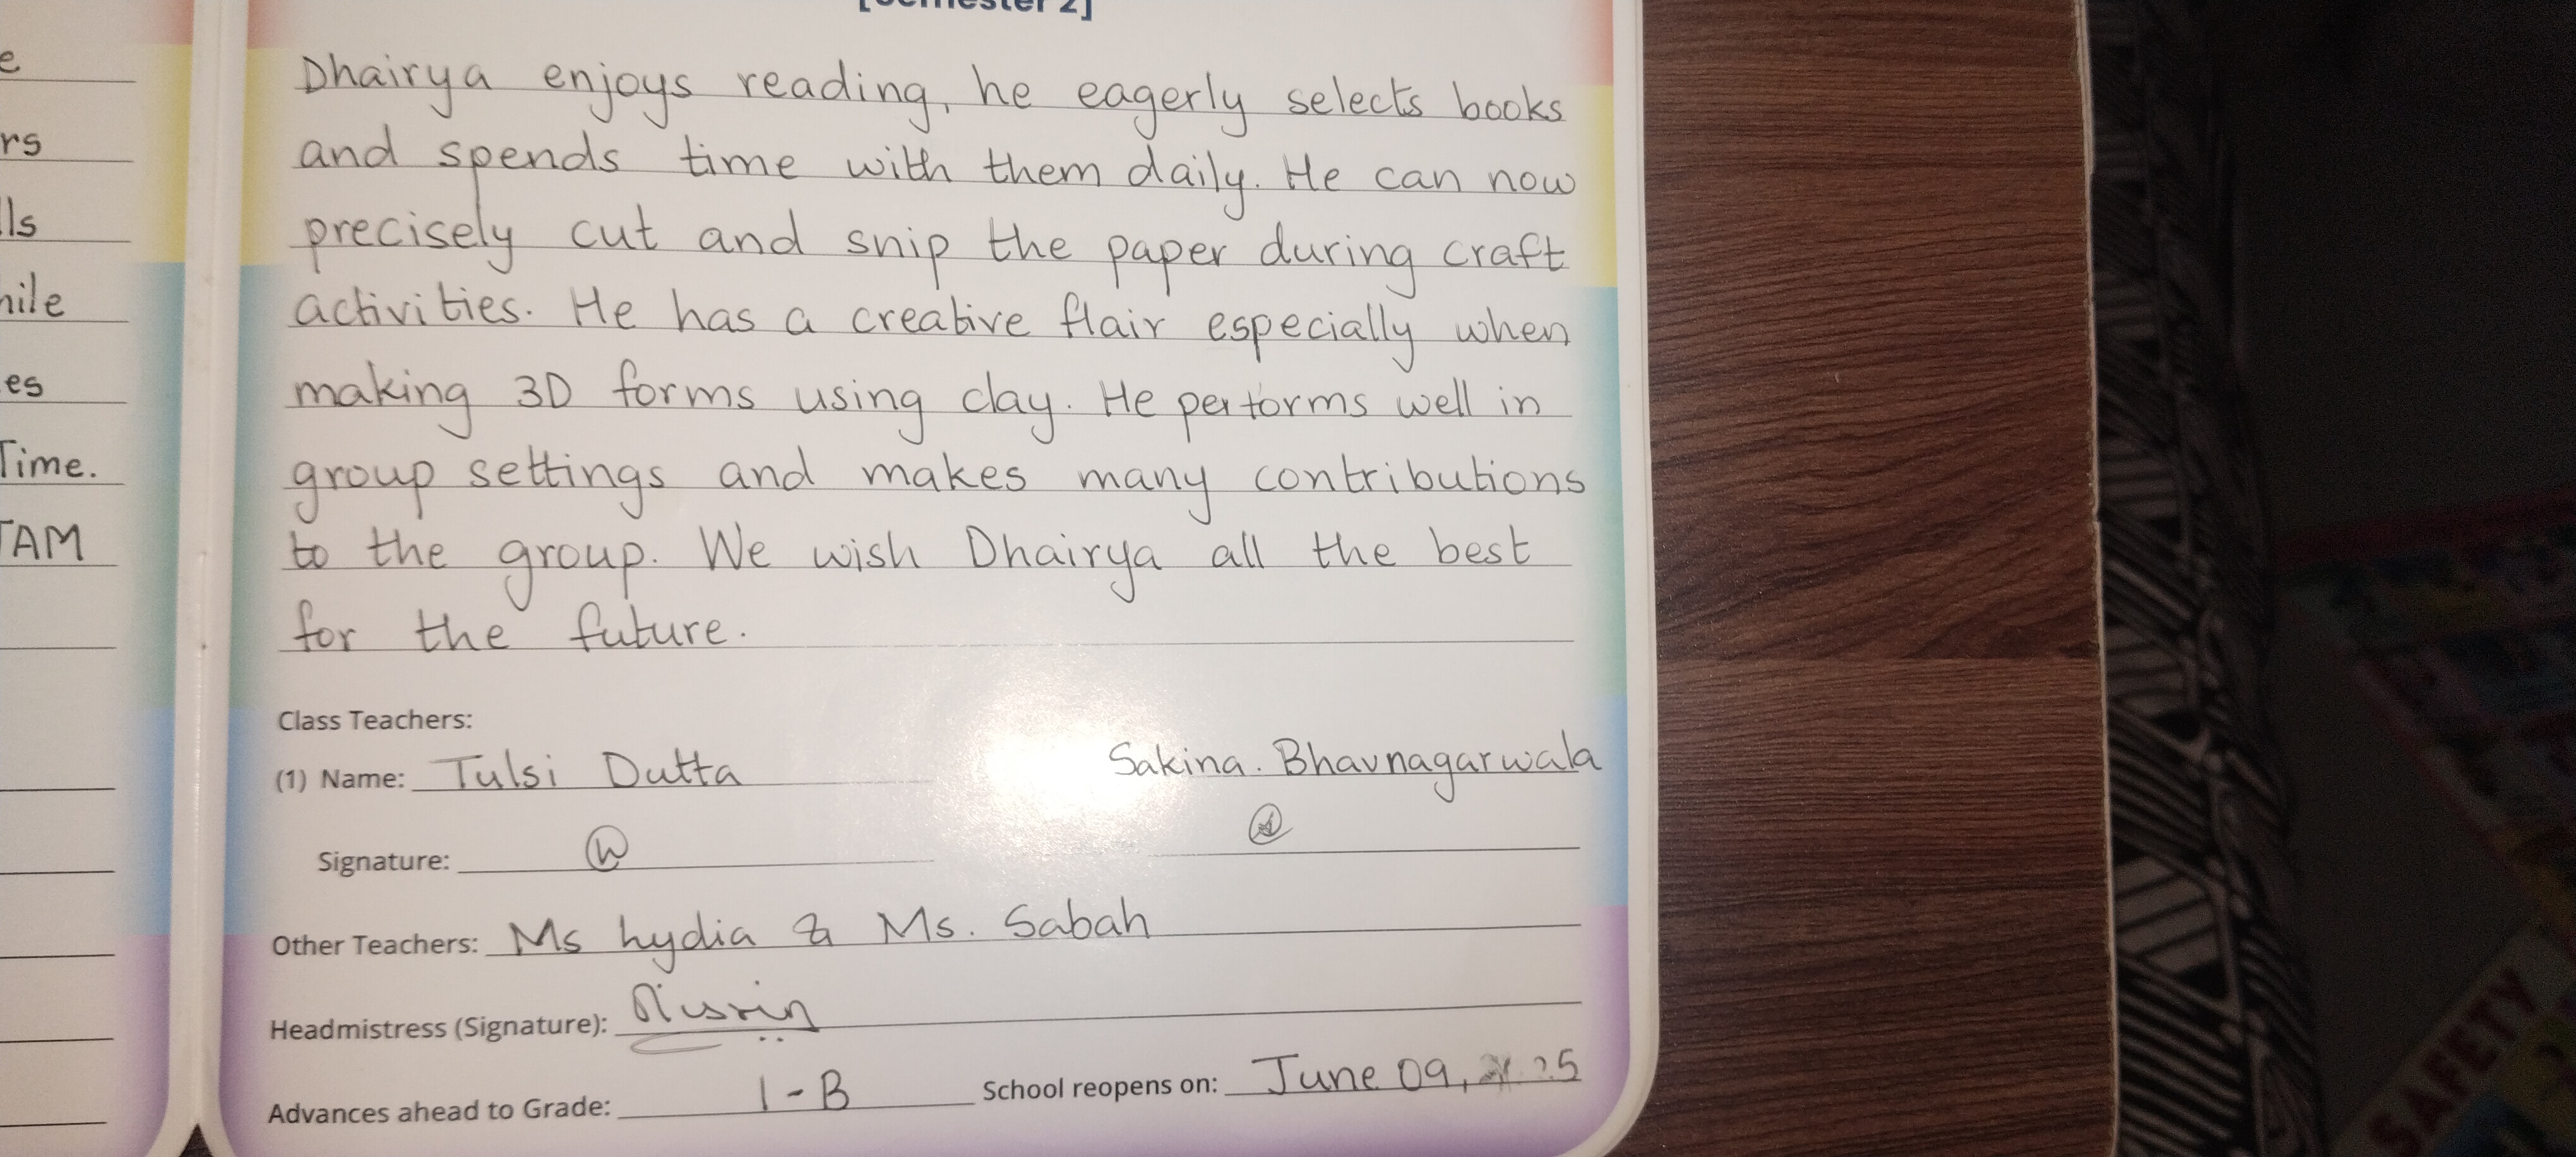 [Semester 2]
Dhairya enjoys reading, he eagerly selects books
and spends time with them daily. He can now
precisely cut and snip the paper during craft
activities. He has a creative flair especially when
making 3D forms using clay. He performs well in
group settings and makes many contributions
to the group. We wish Dhairya all the best
for the future.
Class Teachers:
(1) Name: Tulsi Dutta Sakina. Bhavnagarwala
Signature:
Other Teachers: Ms Lydia & Ms. Sabah
Headmistress (Signature):
Advances ahead to Grade: 1-B School reopens on: June 09,
e
rs
ls
hile
es
Time.
TAM
SAFETY